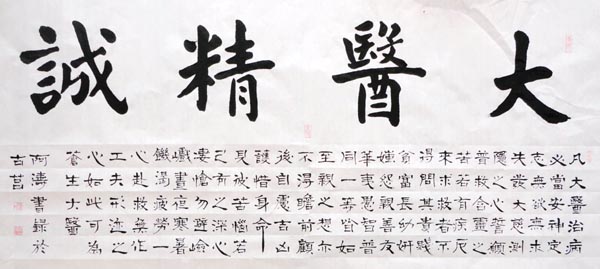 大醫精誠
凡大醫治病
必當安神定
志無欲無求
先發大慈惻
隱之心誓願
普救含靈之
苦若有疾厄
來求救者不
得問其貴賤
貧富長幼妍
媸怨親善友
華夷愚智普
同一等皆如
至親之想亦
不得瞻前顧
後自慮吉凶
護惜身命
見彼苦惱若
己有之深心
悽愴勿避險
巇晝夜寒暑
飢渴疲勞一
心赴救無作
工夫形迹之
心如此可為
蒼生大醫
阿濤書錄於
古莒